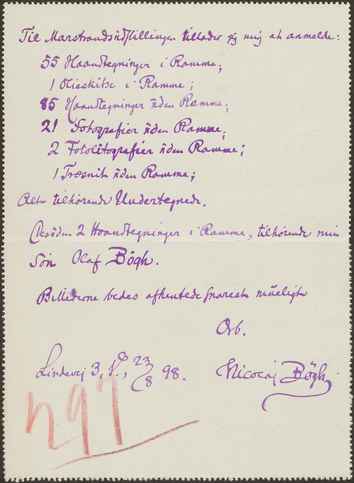 Til Marstrandsudstillingen tillader jeg mig at anmelde:
55 Haandtegninger i Ramme;
1 Olieskitse i Ramme;
86 Haandtegninger uden Ramme;
21 Fotografier uden Ramme;
2 Fotolitografier uden Ramme;
1 Træsnit uden Ramme;
Alt tilhørende Undertegnede.
Desuden 2 Haandtegninger i Ramme, tilhørende min
Søn Olaf Bögh.
Billederne bedes afhentede snarest mueligt
Ærb.
Lindevej 3, 1., 23/8 98. Nicolaj Bögh.
297